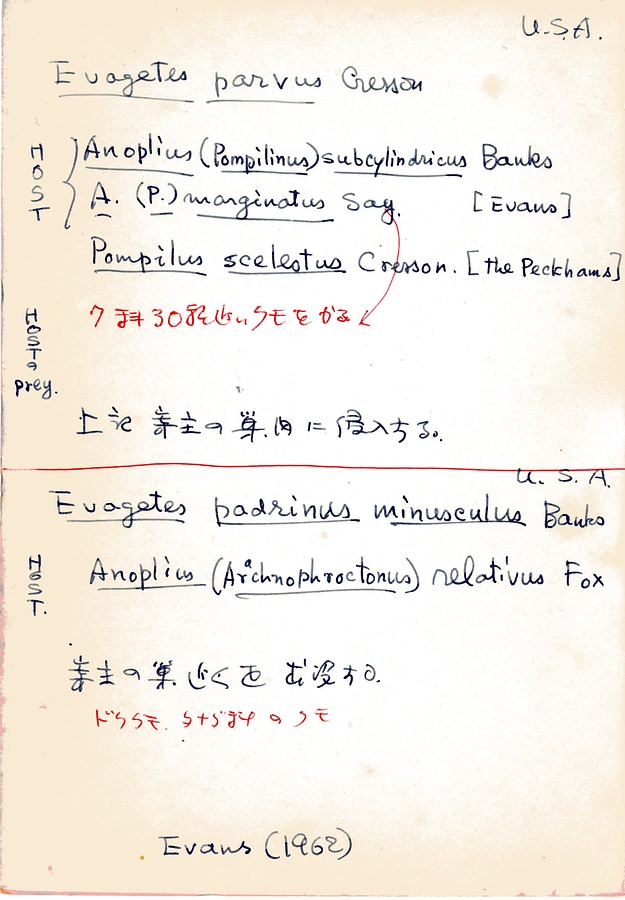 U.S.A.
Evagetes parvus Cresson
HOST
Anoplius (Pompilinus) subcylindricus Banks
A. (P.) marginatus Say. [Evans]
Pompilus scelestus Cresson. [the Peckhams]
HOSTの prey.
7科30種近いクモをかる
上記 寄主の巣内に侵入する。
U.S.A.
Evagetes padrinus minusculus Banks
HOST.
Anoplius (Arachnophroctonus) relativus Fox
寄主の巣近くを する。
のクモ
Evans (1962)